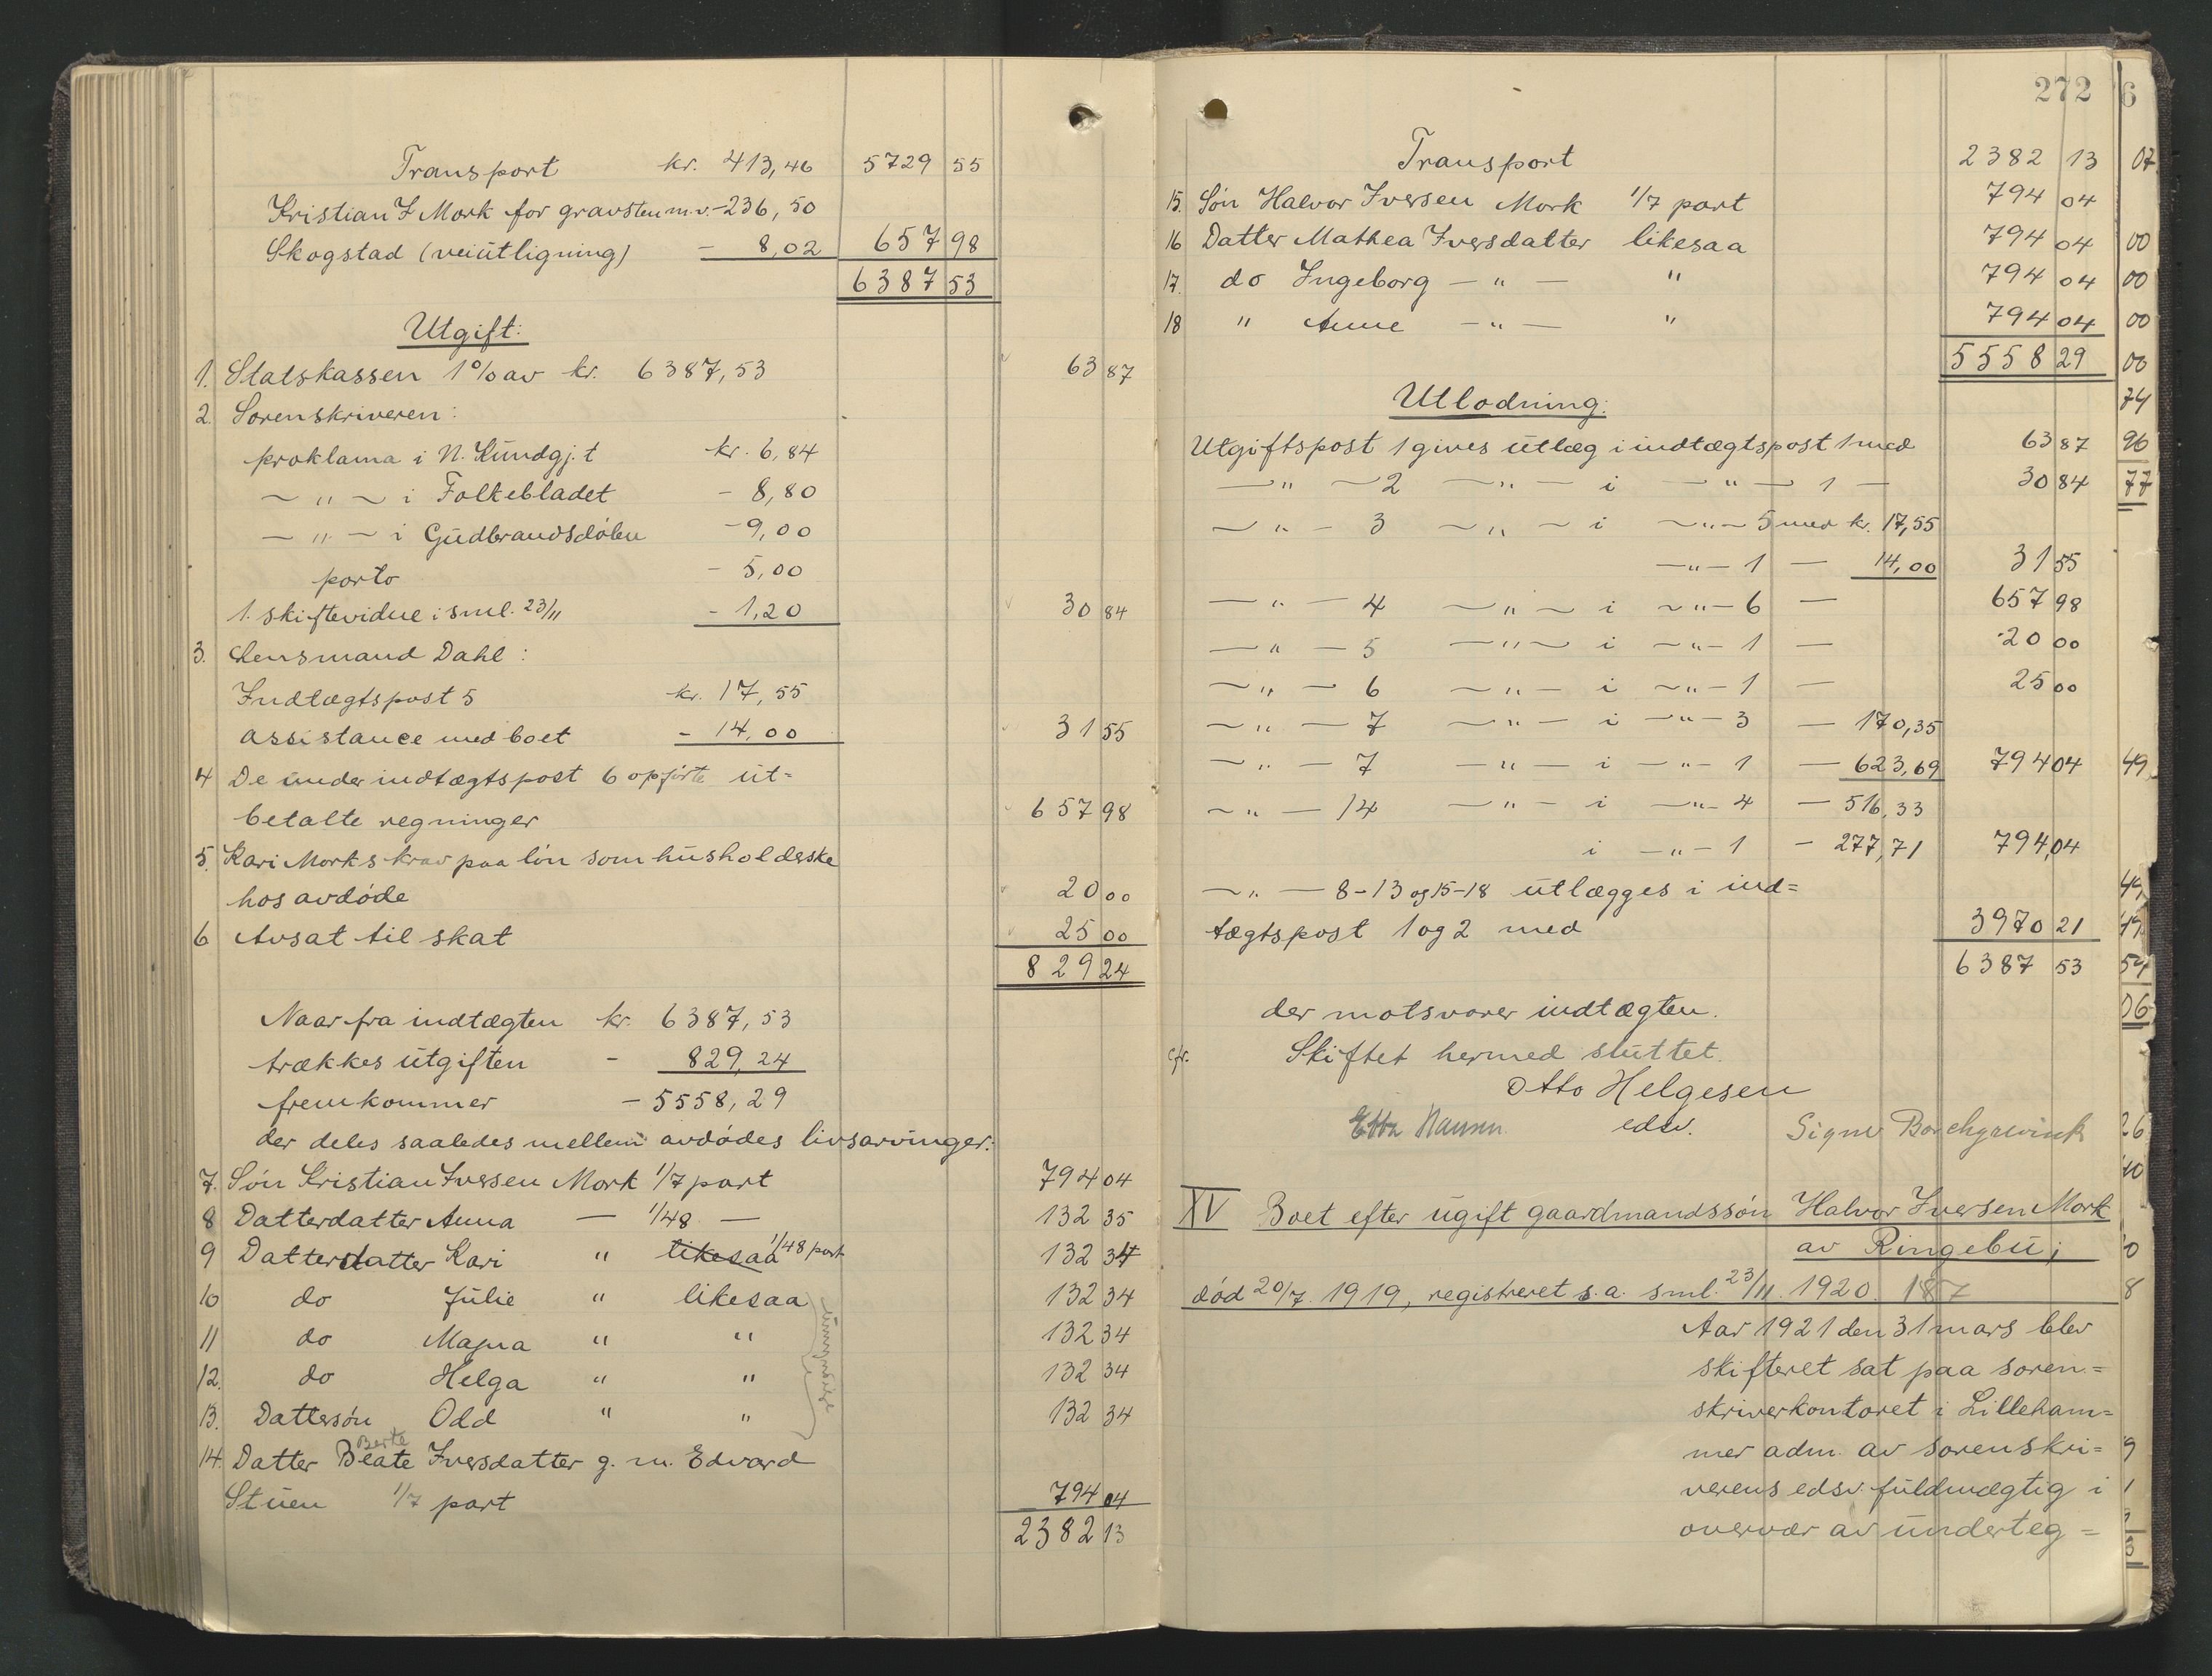 Transport kr. 413,46 5729 55
Kristian I Mork for gravsten m.v. - 236,50
Skogstad (veiutligning) - 8,02 657 98
6387 53
Utgift:
1. Statskassen 1% av kr. 6387,53 63 87
2. Sorenskriveren:
proklama i N. Kundgj.t kr. 6,84
— " — i Folkebladet - 8,80
— " — i Gudbrandsdølen - 9,00
porto - 5,00
1. skiftevidne i sml. 23/11 - 1,20 30 84
3. Lensmand Dahl:
Indtægtspost 5 kr. 17,55
assistance med boet - 14,00 31 55
4 De under indtægtspost 6 opførte ut=
betalte regninger 657 98
5. Kari Morks krav paa løn som husholderske
hos avdøde 20 00
6 Avsat til skat 25 00
829 24
Naar fra indtægten kr. 6387,53
trækkes utgiften - 829,24
fremkommer - 5558,29
der deles saaledes mellem avdødes livsarvinger:
7. Søn Kristian Iversen Mork 1/7 part 794 04
8 Datterdatter Anna — 1/48 — 132 35
9 Datterdatter Kari " likesaa 1/48 part 132 34
10 do Julie " likesaa 132 34
11 do Magna " " 132 34
12. do Helga " " 132 34
13. Dattersøn Odd " " 132 34
umyndige
Berte
14. Datter Beate Iversdatter g. m. Edvard
Stuen 1/7 part 794 04
2382 13
272
Transport 2382 13
15. Søn Halvor Iversen Mork 1/7 part 794 04
16 Datter Mathea Iversdatter likesaa 794 04
17. do Ingeborg — " — " 794 04
18 " Anne — " — " 794 04
5558 29
Utlodning:
Utgiftspost 1 gives utlæg i indtægtspost 1 med 63 87
— " — 2 — " — i — " — 1 — 30 84
— " — 3 — " — i — " — 5 med kr. 17,55
— " — 1 — 14,00 31 55
— " — 4 — " — i — " — 6 — 657 98
— " — 5 — " — i — " — 1 — 20 00
— " — 6 — " — i — " — 1 — 25 00
— " — 7 — " — i — " — 3 — 170,35
— " — 7 — " — i — " — 1 — 623,69 794 04
— " — 14 — " — i — " — 4 — 516,33
i — " — 1 - 277,71 794,04
— " — 8-13 og 15-18 utlægges i ind=
tægtspost 1 og 2 med 3970 21
6387 53
der motsvarer indtægten.
cfr. Skiftet hermed sluttet.
Otto Helgesen
edsv.
Signe Borchgrevink
XV Boet efter ugift gaardmandssøn Halvor Iversen Mork
av Ringebu;
død 20/7. 1919, registreret s.a. sml. 23/11. 1920. 187
Aar 1921 den 31 mars blev
skifteret sat paa soren=
skriverkontoret i Lilleham=
mer adm. av sorenskri=
verens edsv. fuldmægtig i
overvær av underteg=